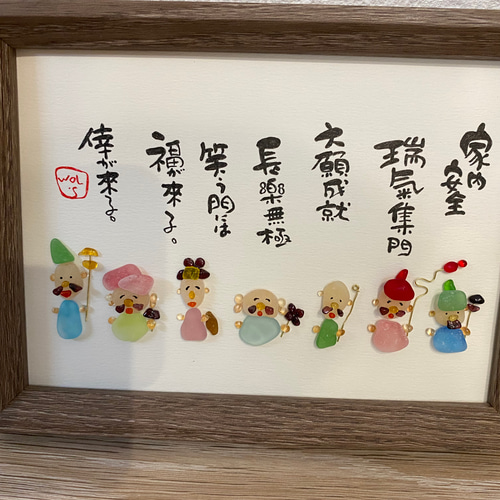 家内安全
瑞氣集門
大願成就
長樂無極
笑う門は
福が来る。
倖が来る。
WOL'S